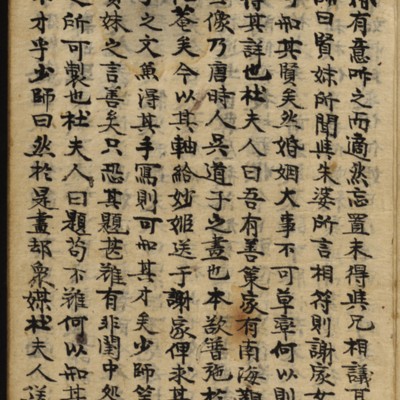 有意咋之而適然忘置未得與兄相議耳
師曰賢妹所聞與朱婆所言相符則謝家女
可知其賢矣然婚姻大事不可草率何以則
得其詳也杜夫人曰吾有善策家有南海觀
像乃唐時人吳道子之畫也本欲施於
菴矣今以其軸給妙姬送于謝家俾求其
子之文兼得其手寫則可知其才矣少師笑
妹之言善矣只恐其題甚難有非閨中
之所可製也杜夫人曰題苟不難何以知其
才乎少師曰然於是畫却衆媒杜夫人送